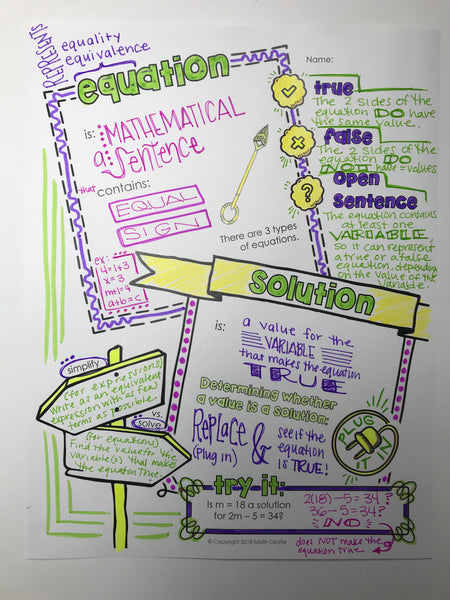 REPRESENTS
equality
equivalence
equation
is: a MATHEMATICAL
sentence
that contains:
EQUAL
SIGN
ex:
4=1+3
x=3
m+1=4
a+b=c
There are 3 types
of equations.
Name:
true
The 2 sides of the
equation DO have
the same value.
false
The 2 sides of the
equation DO
NOT have = values
open
sentence
The equation contains
at least one
VARIABLE
so it can represent
a true or a false
equation, depending
on the value of the
variable.
solution
is: a value for the
VARIABLE
that makes the equation
TRUE
Determining whether
a value is a solution:
Replace
(Plug in)
&
see if the
equation
is TRUE!
PLUG
IT IN
simplify
(for expressions)
Write as an equivalent
expression with as few
terms as possible
vs.
solve
(for equations)
Find the value for the
variable(s) that makes
the equation True
try it:
Is m = 18 a solution
for 2m – 5 = 34?
2(18) – 5 = 34 ?
36 – 5 = 34?
NO
does NOT make the
equation true
© Copyright 2018 Math Giraffe